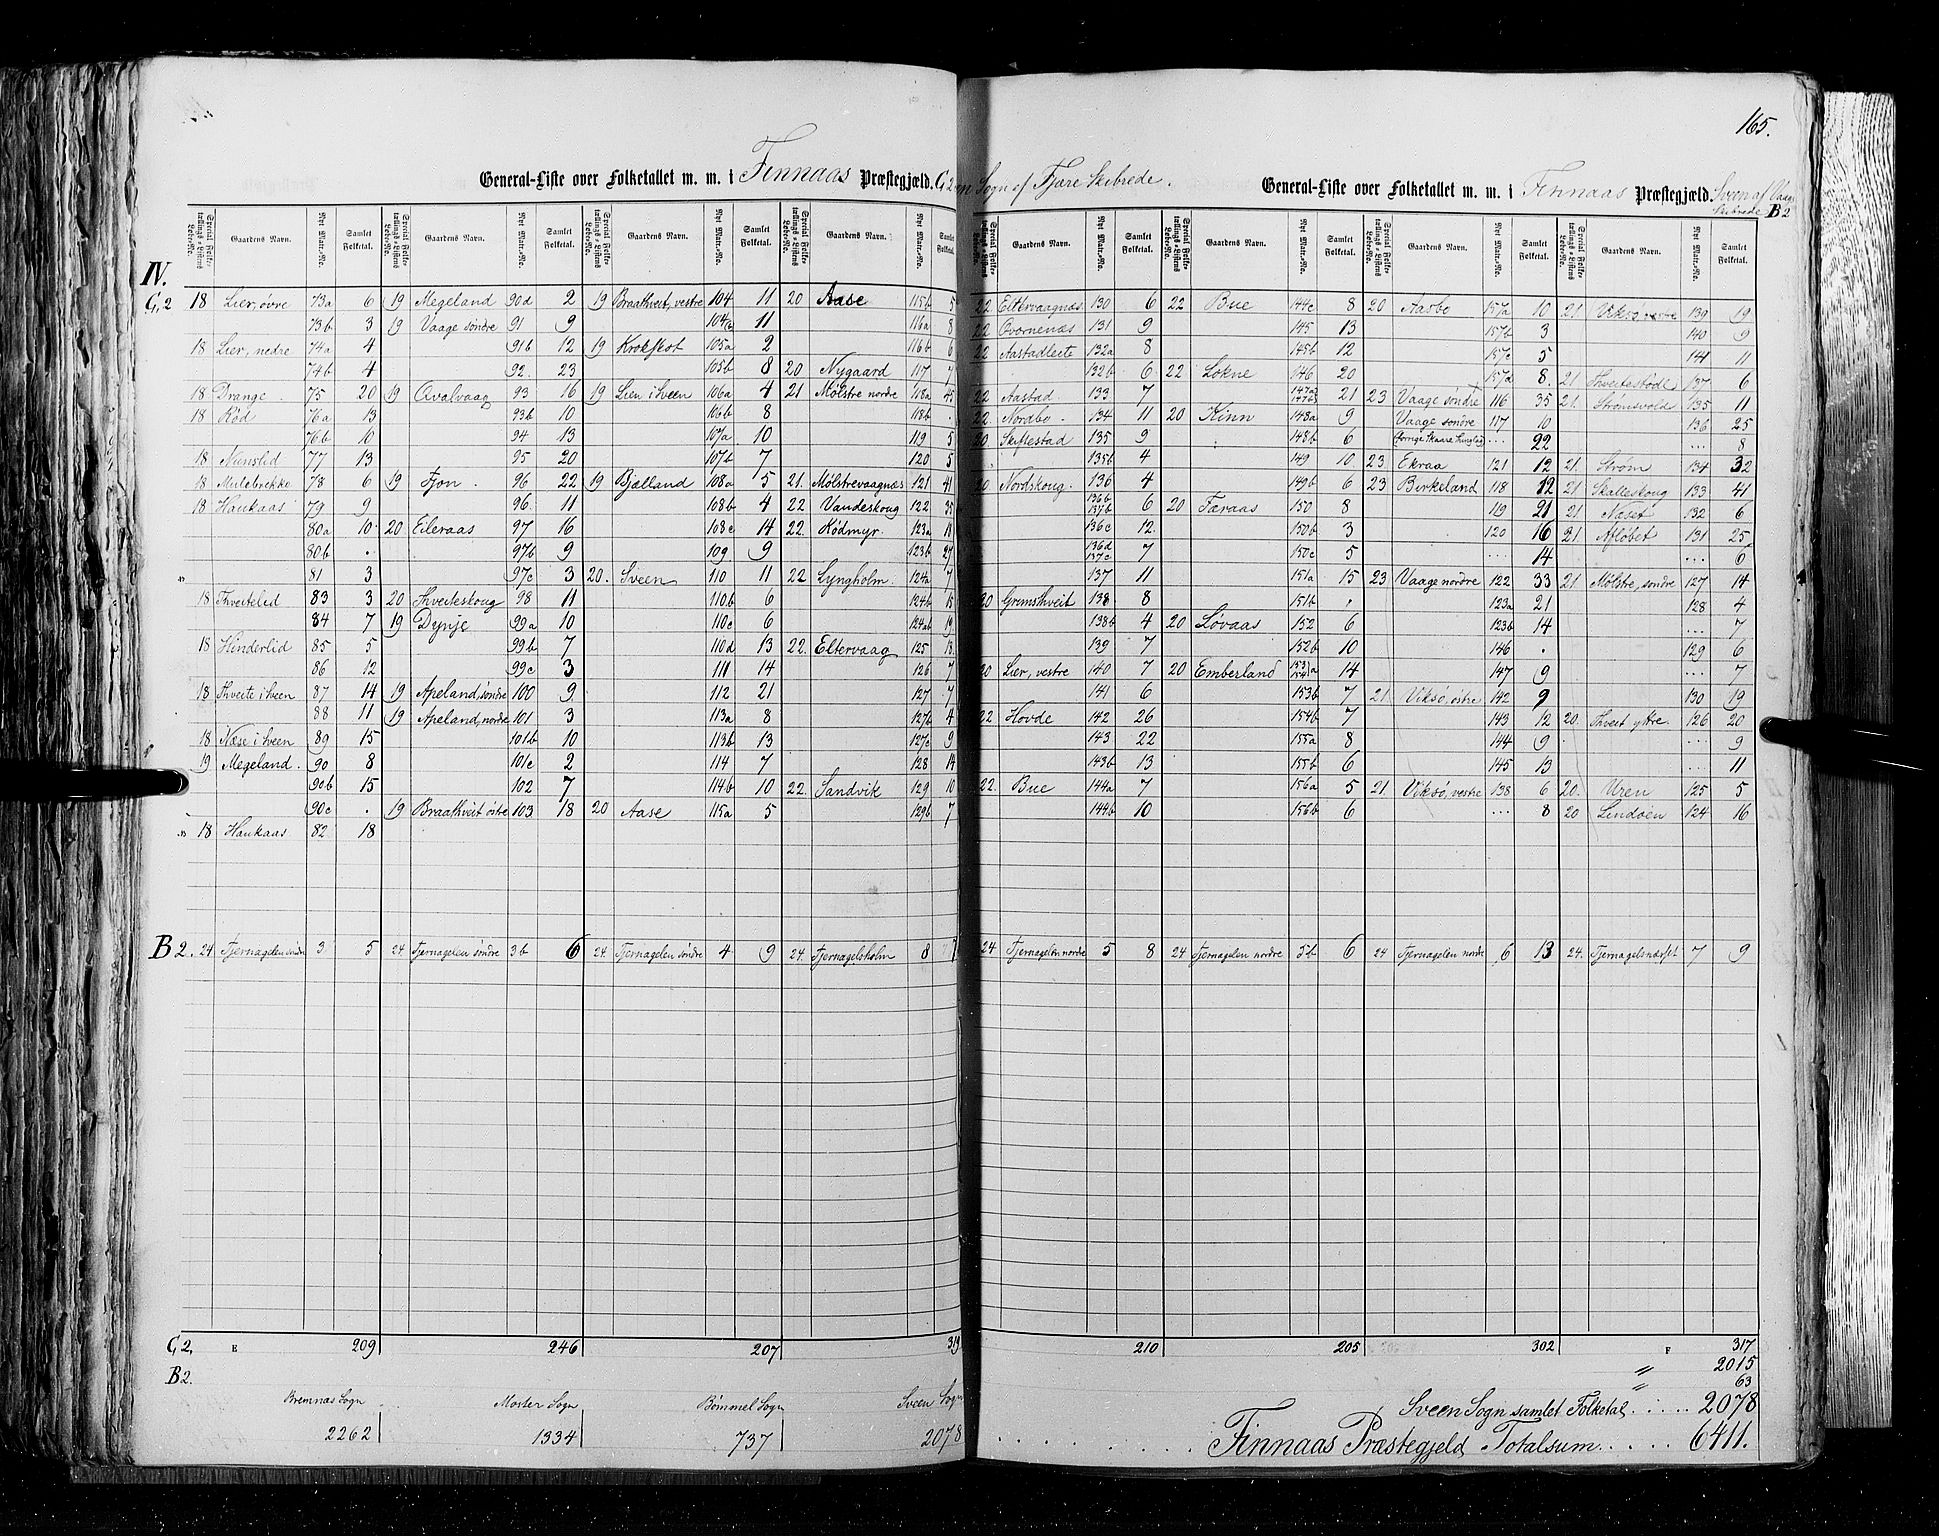 165.
General-Liste over Folketallet m. m. i Finnaas Præstegjæld. G. 2
Sogn af Fjære Skibrede.
General-Liste over Folketallet m. m. i Finnaas Præstegjæld. Sveen af
Skibrede B 2
Special Folketællings-Listens Løbe-No. Gaardens Navn. Nyt Matr.-No. Samlet Folketal.
IV.
G, 2 18 Lier, øvre 73a 6 19 Megeland 90d 2 19 Braathveit, vestre 104 11 20 Aase 115b 5
73b 3 19 Vaage søndre 91 9 104b 11 116a 8
18 Lier, nedre 74a 4 91b 12 19 Krokskot 105a 2 116b 6
74b 4 92 23 105b 8 20 Nygaard 117 7
18 Drange 75 20 19 Qvalvaag 93 16 19 Lien i Sveen 106a 4 21 Mølstre nordre 118a 45
18 Rød 76a 13 93b 10 106b 8 118b .
76b 10 94 13 107a 10 119 5
18 Nunslid 77 13 95 20 107b 7 120 5
18 Midebrekke 78 6 19 Fjon 96 22 19 Bjælland 108a 5 21. Mølstrevaagnæs 121 41
18 Haukaas 79 9 96. 11 108b 4 22 Vandeskoug 122 35
80a 10 20 Eileraas 97 16 108c 14 22. Rødmyr. 123a 18
80b . 97b 9 109 9 123b 27
81 3 97c 3 20. Sveen 110 11 22 Lyngholm. 124a 7
18 Thveitelid 83 3 20 Thveiteskoug 98 11 110b 6 124b 15
84 7 19 Dynje 99a 10 110c 6 124ab 19
18 Hinderlid 85 5 99b 7 110d 13 22. Eltervaag 125 13
86 12 99c 3 111 14 126 7
18 Thveite i Sveen 87 14 19 Apeland, søndre 100 9 112 21 127 7
88 11 19 Apeland, nordre 101 3 113a 8 127b 4
18 Næse i Sveen 89 15 101b 10 113b 13 127c 9
19 Megeland. 90 8 101c 2 114 7 128 14
90b 15 102 7 114b 10 22. Sandvik 129 10
90c . 19 Braathveit østre 103 18 20 Aase 115a 5 129b 7
18 Haukaas 82 18
B 2. 24 Tjernagelen søndre 3 5 24 Tjernagelen søndre 3b 6 24. Tjernagelen søndre 4 9 24. Tjernagelsholm 8 7
G 2, E 209 246 207 319
B 2.
Bremnas Sogn Moster Sogn Bømmel Sogn Sveen Sogn
2262 1334 737 2078
22 Eltervaagnæs 130 6 22 Bue 144c 8 20 Aasbo 157a 10 21 Viksø, vestre 139 19
22 Qvornenæs 131 9 145 13 157b 3 140 9
22 Aastadleete 132a 8 145b 12 157c 5 141 11
132b 6 22 Løkne 146 20 157d 8. 21 Thveitestøde 137 6
22 Aastad 133 7 147a 147b 21 23 Vaage søndre 116 35 21. Strømsvold 135 11
22 Nordbø. 134 11 20 Kinn 148a 9 Vaage søndre 117 10 136 25
20 Skiftestad 135 9 148b 6 22 8
135b 4 149 10 23 Ekraa 121 12 21. Strøm 134 32
20 Nordskoug. 136 4 149b 6 23 Birkeland 118 12 21 Skalleskoug 133 41
136b 137b 6 20 Færaas 150 8 119 21 21. Næset 132 6
136c 12 150b 3 120 16 21. Afløbet 131 25
136d 137c 7 150c 5 14 6
137 11 151a 15 23 Vaage nordre 122 33 21 Mølstre, søndre 127 14
20 Gremsthveit 138 8 151b . 123a 21 128 4
138b 4 20 Løvaas 152 6 123b 14 7
139 7 152b 10 146 . 129 6
20 Lier, vestre 140 7 20 Emberland 153a 154a 14 147 9 7
141 6 153b 7 21. Viksø, østre 142 9 130 19
22 Hovde 142 26 154b 7 143 12 20. Thveit ytre. 126 20
143 22 155a 8 144 9 9
143b 13 155b 6 145 13 11
22. Bue 144a 7 156a 5 21. Viksø, vestre 138 6 20. Uren 125 5
144b 10 156b 6 8 20 Lindøen 124 16
24 Tjernagelen nordre 5 8 24 Tjernagelen nordre 5b 6 24 Tjernagelen nordre 6 13 24. Tjernagelsnæset 7 9
210 205 302 F 317
" 2015
" 63
Sveen Sogn samlet Folketal ..... 2078
Finnaas Præstegjeld Totalsum ..... 6411.